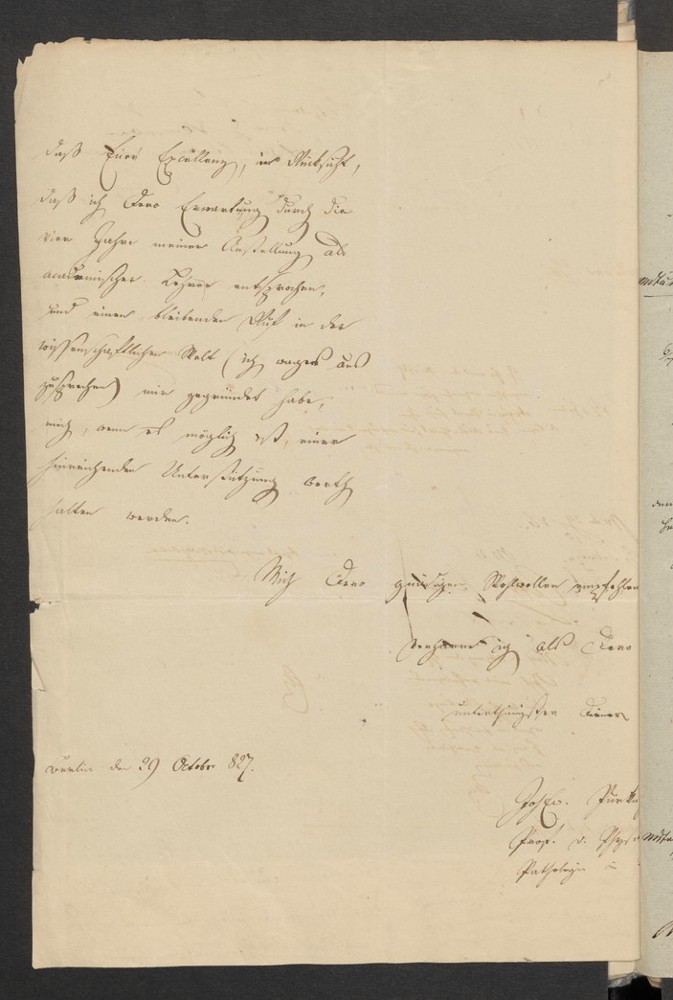 daß Eure Excellenz, in Rücksicht,
daß ich Dero Erwartung durch die
vier Jahre meiner Anstellung als
academischer Lehrer entsprochen,
und einen bleibenden Ruf in der
wissenschaftlichen Welt (ich wage es aus
zusprechen) mir gegründet habe,
mich, wenn es möglich ist, einer
hinreichenden Unterstützung werth
halten werden.
Mich Dero gnädigen Wohlwollen empfehlen
verharre ich als Dero
unterthänigster Diener
Berlin den 29 October 827.
Joh. Ev. Purk
Prof. d. Phys
Pathologie